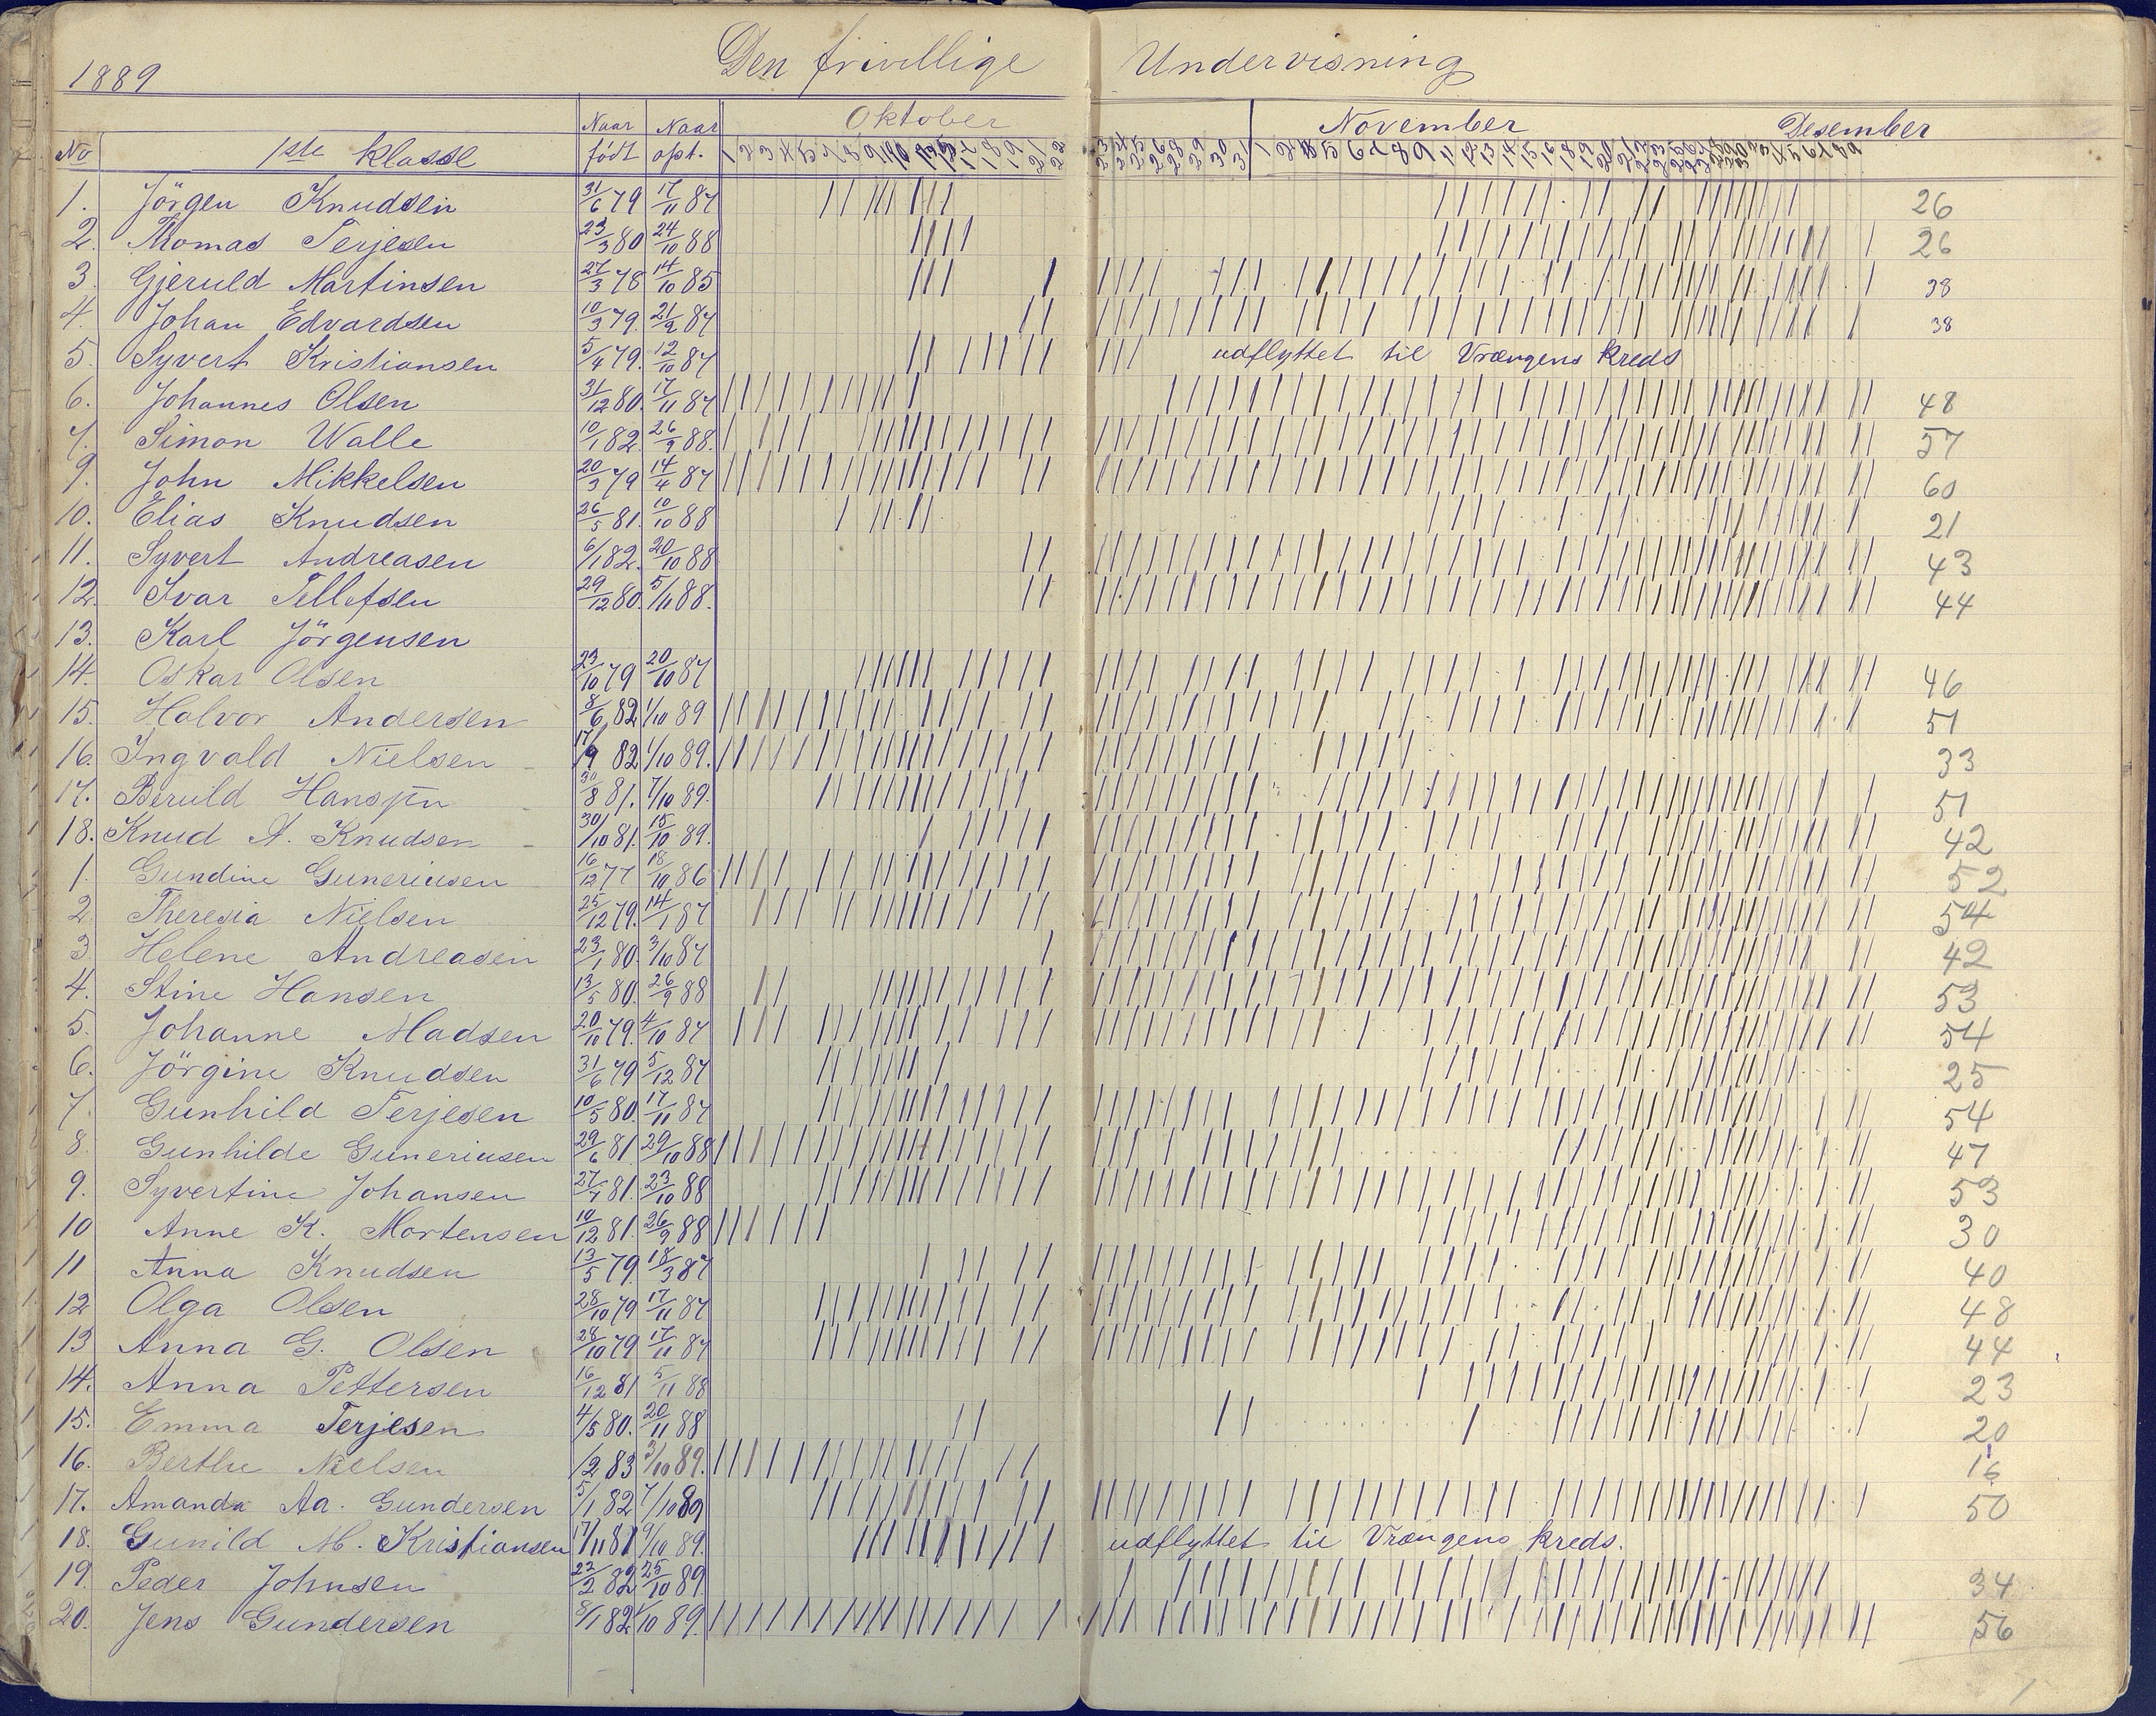 1889 Den frivillige Undervisning
Naar Naar Oktober November Desember
No 1ste klasse født opt.
1. Jörgen Knudsen 31/6 79 17/11 87 26
2. Thomas Terjesen 23/3 80 24/10 88 26
3. Gjeruld Martinsen 27/3 78 14/10 85 38
4. Johan Edvardsen 10/3 79. 21/2 87 38
5. Syvert Kristiansen 5/4 79. 12/10 87 udflyttet til Vrængens Kreds
6. Johannes Olsen 31/12 80. 17/11 87 48
7. Simon Walle 10/1 82. 26/9 88. 57
9. John Mikkelsen 20/3 79 14/4 87 60
10. Elias Knudsen 26/5 81. 10/10 88 21
11. Syvert Andreasen 6/1 82. 20/10 88 43
12. Ivar Tellefsen 29/12 80. 5/11 88. 44
13. Karl Jörgensen
14. Oskar Olsen 23/10 79 20/10 87 46
15. Halvor Andersen 8/6 82 1/10 89 51
16. Ingvald Nielsen 17/9 82 1/10 89. 33
17. Beruld Hansen 30/8 81. 7/10 89. 51
18. Knud A. Knudsen 30/10 81. 15/10 89. 42
1. Gundine Guneriusen 16/12 77 18/10 86 52
2. Theresia Nielsen 25/12 79. 14/1 87 54
3 Helene Andreasen 23/1 80. 3/10 87 42
4. Stine Hansen 13/5 80. 26/9 88 53
5. Johanne Madsen 20/10 79. 4/10 87 54
6. Jörgine Knudsen 31/6 79 5/12 87 25
7. Gunhild Terjesen 10/5 80. 17/11 87 54
8. Gunhilde Guneriusen 29/6 81. 29/10 88 47
9. Syvertine Johansen 27/7 81. 23/10 88 53
10 Anne K. Mortensen 10/12 81. 26/9 88 30
11 Anna Knudsen 13/5 79. 18/3 87 40
12 Olga Olsen 28/10 79 17/11 87 48
13 Anna G. Olsen 28/10 79 17/11 87 44
14. Anna Pettersen 16/12 81 5/11 88 23
15. Emma Terjesen 4/5 80. 20/11 88 20
16. Berthe Nielsen /2 83 3/10 89. 16
17. Amanda Aa. Gundersen 5/1 82 7/10 89 50
18. Gunild M. Kristiansen 17/11 81 9/10 89. udflyttet til Vrængens kreds.
19. Peder Johnsen 22/2 82 25/10 89. 34
20. Jens Gundersen 8/1 82 1/10 89. 56